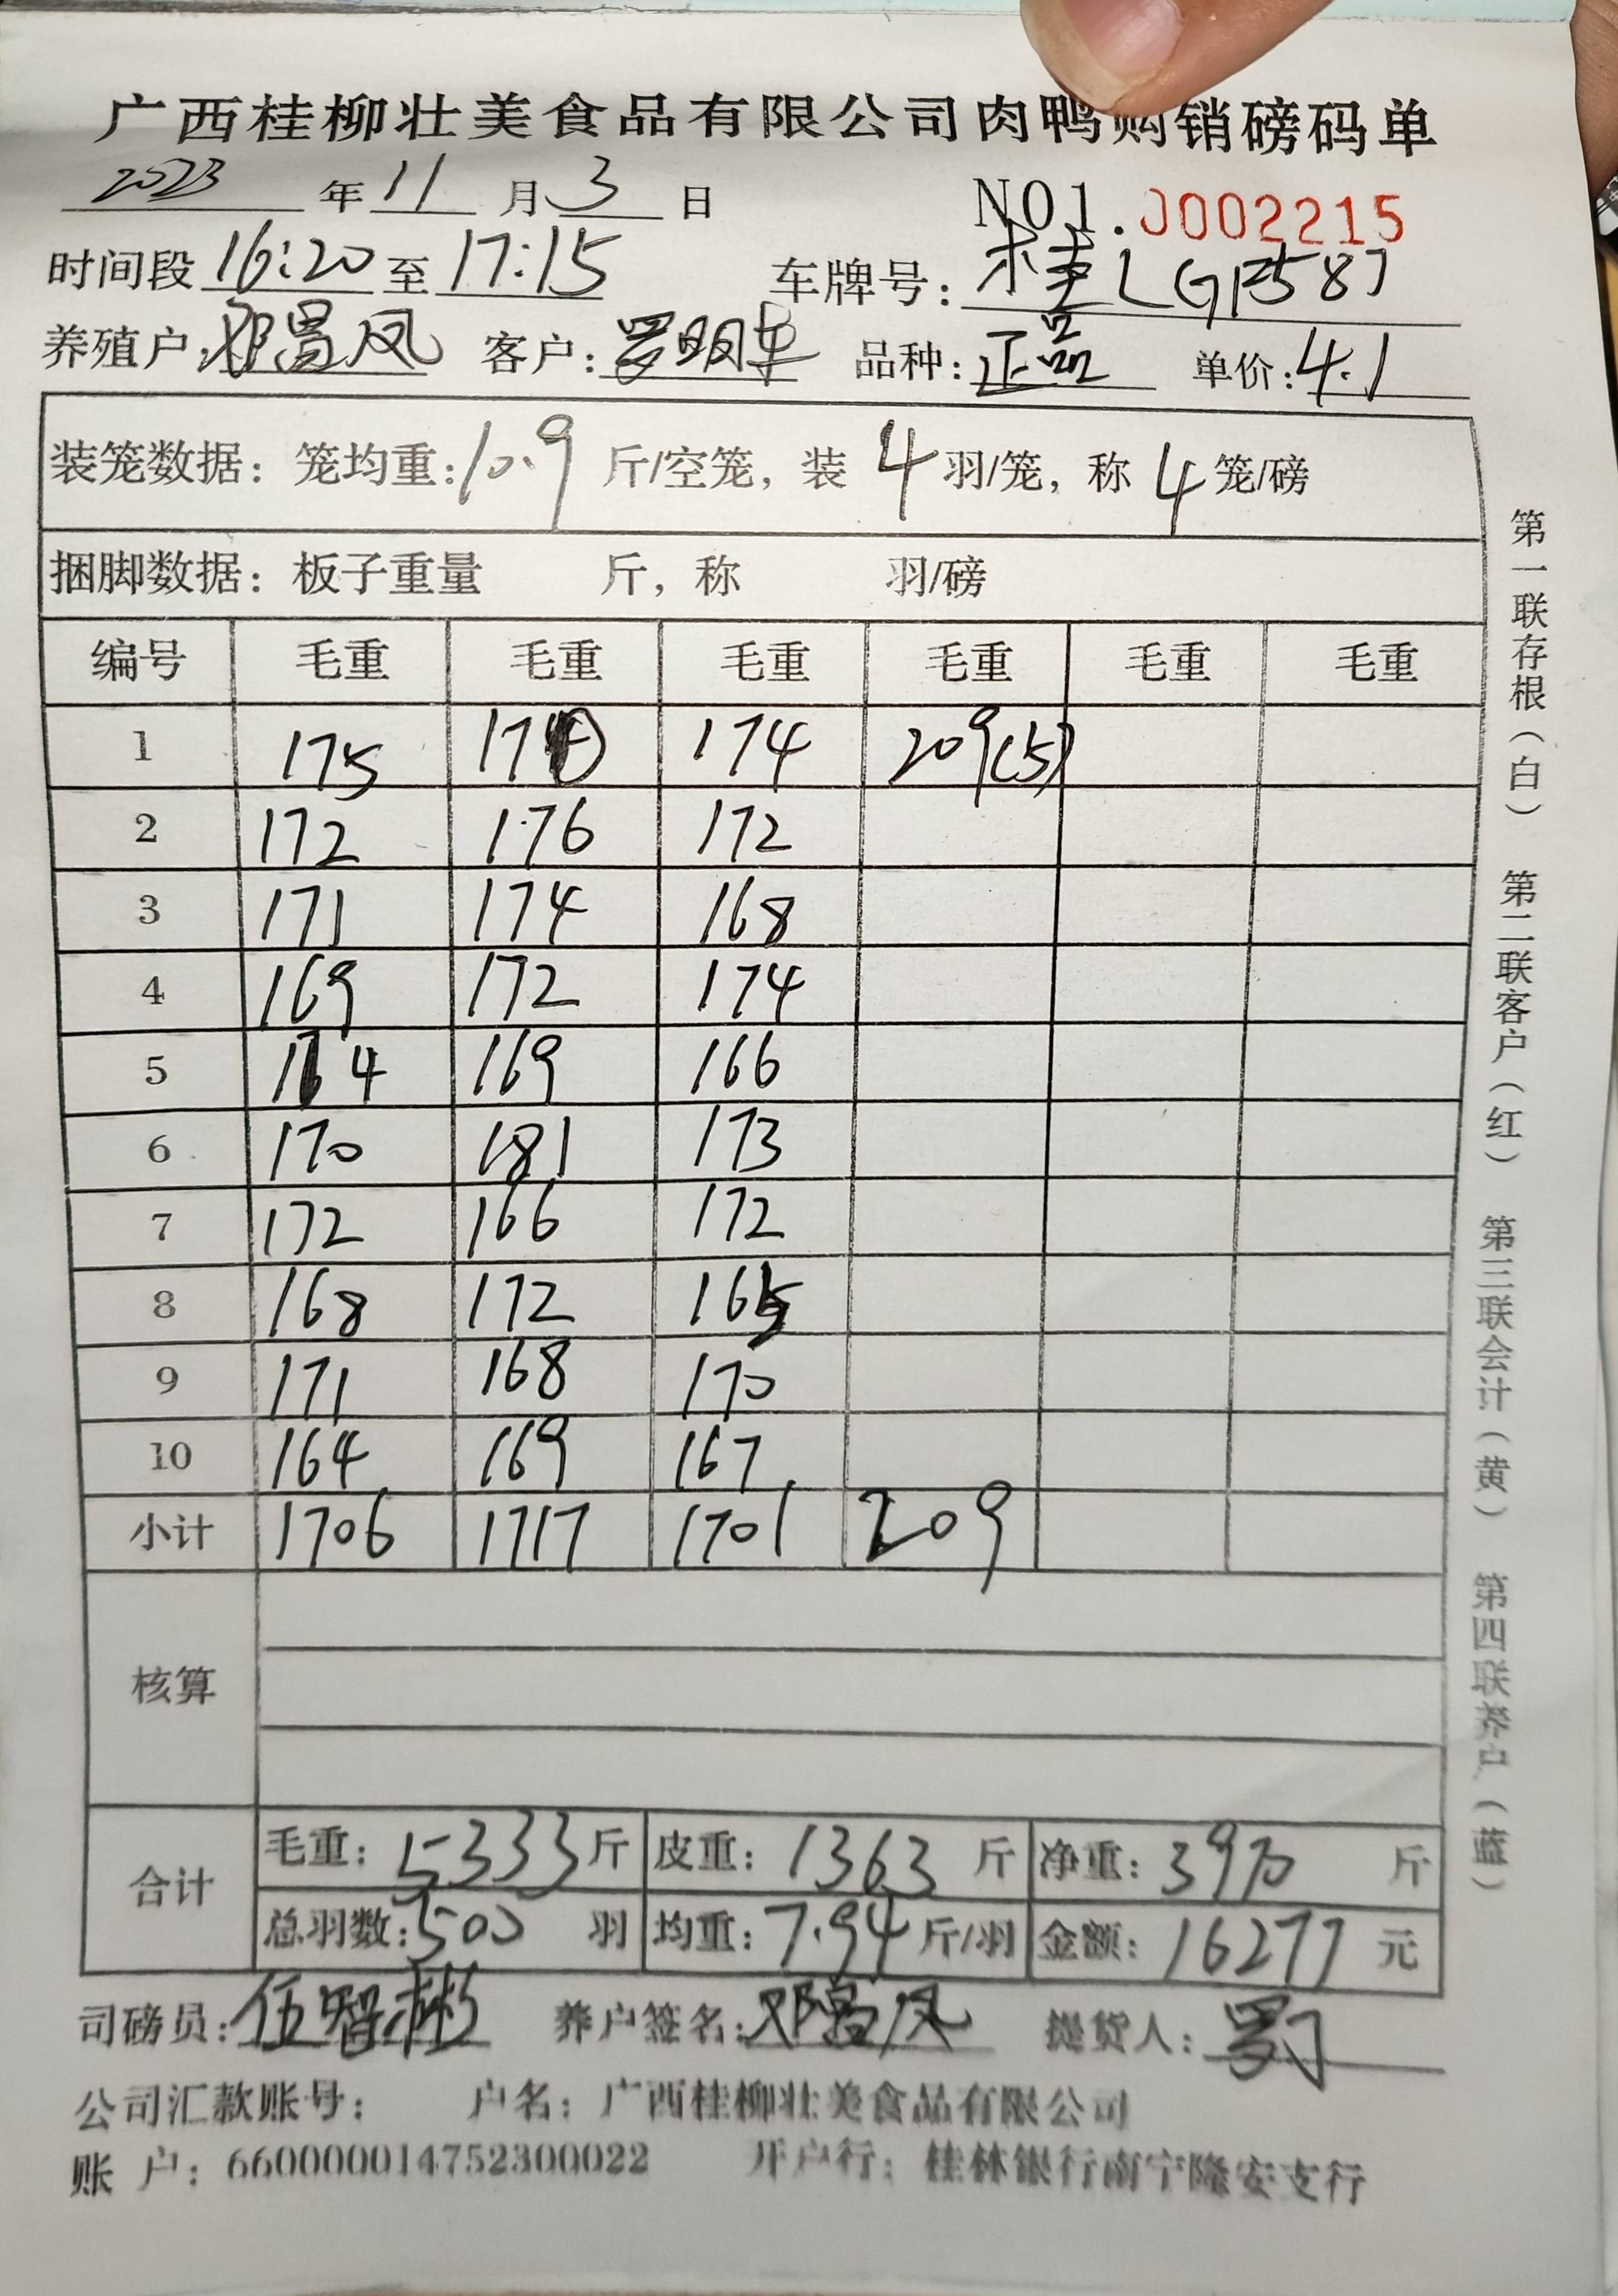 广西桂柳壮美食品有限公司肉鸭购销磅码单
2023 年 11 月 3 日 NO1.0002215
时间段 16:20 至 17:15 车牌号: 桂LGF587
养殖户: 邓昌凤 客户: 罗明 品种: 正品 单价: 4.1
装笼数据: 笼均重: 10.9 斤/空笼, 装 4 羽/笼, 称 4 笼/磅
捆脚数据: 板子重量 斤, 称 羽/磅
编号 毛重 毛重 毛重 毛重 毛重 毛重
1 175 170 174 209(5)
2 172 176 172
3 171 174 168
4 169 172 174
5 174 169 166
6 170 181 173
7 172 166 172
8 168 172 165
9 171 168 170
10 164 169 167
小计 1706 1717 1701 209
核算
合计 毛重: 5333 斤 皮重: 1363 斤 净重: 3970 斤
总羽数: 500 羽 均重: 7.94 斤/羽 金额: 16277 元
司磅员: 伍智彬 养户签名: 邓昌凤 提货人: 罗
公司汇款账号: 户名: 广西桂柳壮美食品有限公司
账 户: 660000014752300022 开户行: 桂林银行南宁隆安支行
第一联存根(白) 第二联客户(红) 第三联会计(黄) 第四联养户(蓝)